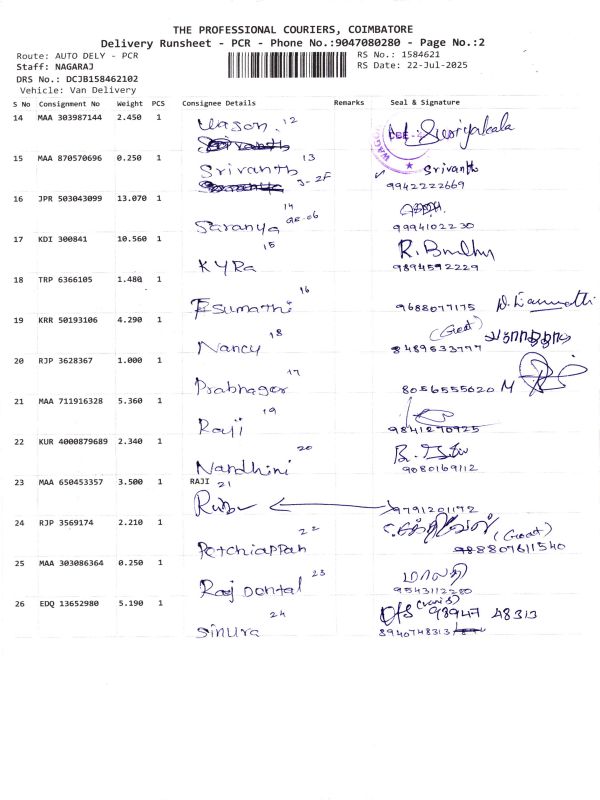 THE PROFESSIONAL COURIERS, COIMBATORE
Delivery Runsheet - PCR - Phone No.:9047080280 - Page No.:2
Route: AUTO DELY - PCR
RS No.: 1584621
Staff: NAGARAJ
RS Date: 22-Jul-2025
DRS No.: DCJB158462102
Vehicle: Van Delivery
S No Consignment No Weight PCS Consignee Details Remarks Seal & Signature
14 MAA 303987144 2.450 1
Wason. 12
15 MAA 870570696 0.250 1
Srivanth 13 Srivanth
9942222669
16 JPR 503043099 13.070 1
Saranya 14
9994102230
17 KDI 300841 10.560 1
KYRa 15
9894592229
18 TRP 6366105 1.480 1
Sumathi 16 9688077175
19 KRR 50193106 4.290 1
Nancy 18
8489533777
20 RJP 3628367 1.000 1
Prabhager 17 8056555020
21 MAA 711916328 5.360 1
Raji 19 9841270925
22 KUR 4000879689 2.340 1
Nandhini 20
9080169112
23 MAA 650453357 3.500 1 RAJI 21
9791201172
24 RJP 3569174 2.210 1
Petchiappan 22
25 MAA 303086364 0.250 1 மாலதி
Raj Dental 23
9543112280
26 EDQ 13652980 5.190 1 98947 48313
Sinura 24 8940748313